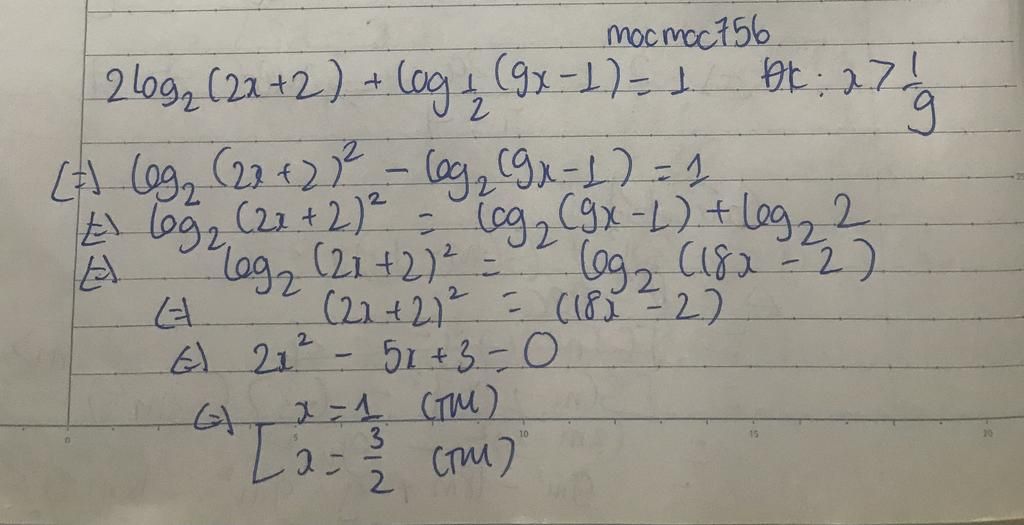 mocmoc756
2log₂(2x+2) + log_{1/2}(9x-1) = 1 ĐK: x > 1/9
(=) log₂(2x+2)² - log₂(9x-1) = 1
(=) log₂(2x+2)² = log₂(9x-1) + log₂2
(=) log₂(2x+2)² = log₂(18x-2)
(=) (2x+2)² = (18x-2)
(=) 2x² - 5x + 3 = 0
(=) [ x = 1 (TM)
x = 3/2 (TM)
0 5 10 15 20